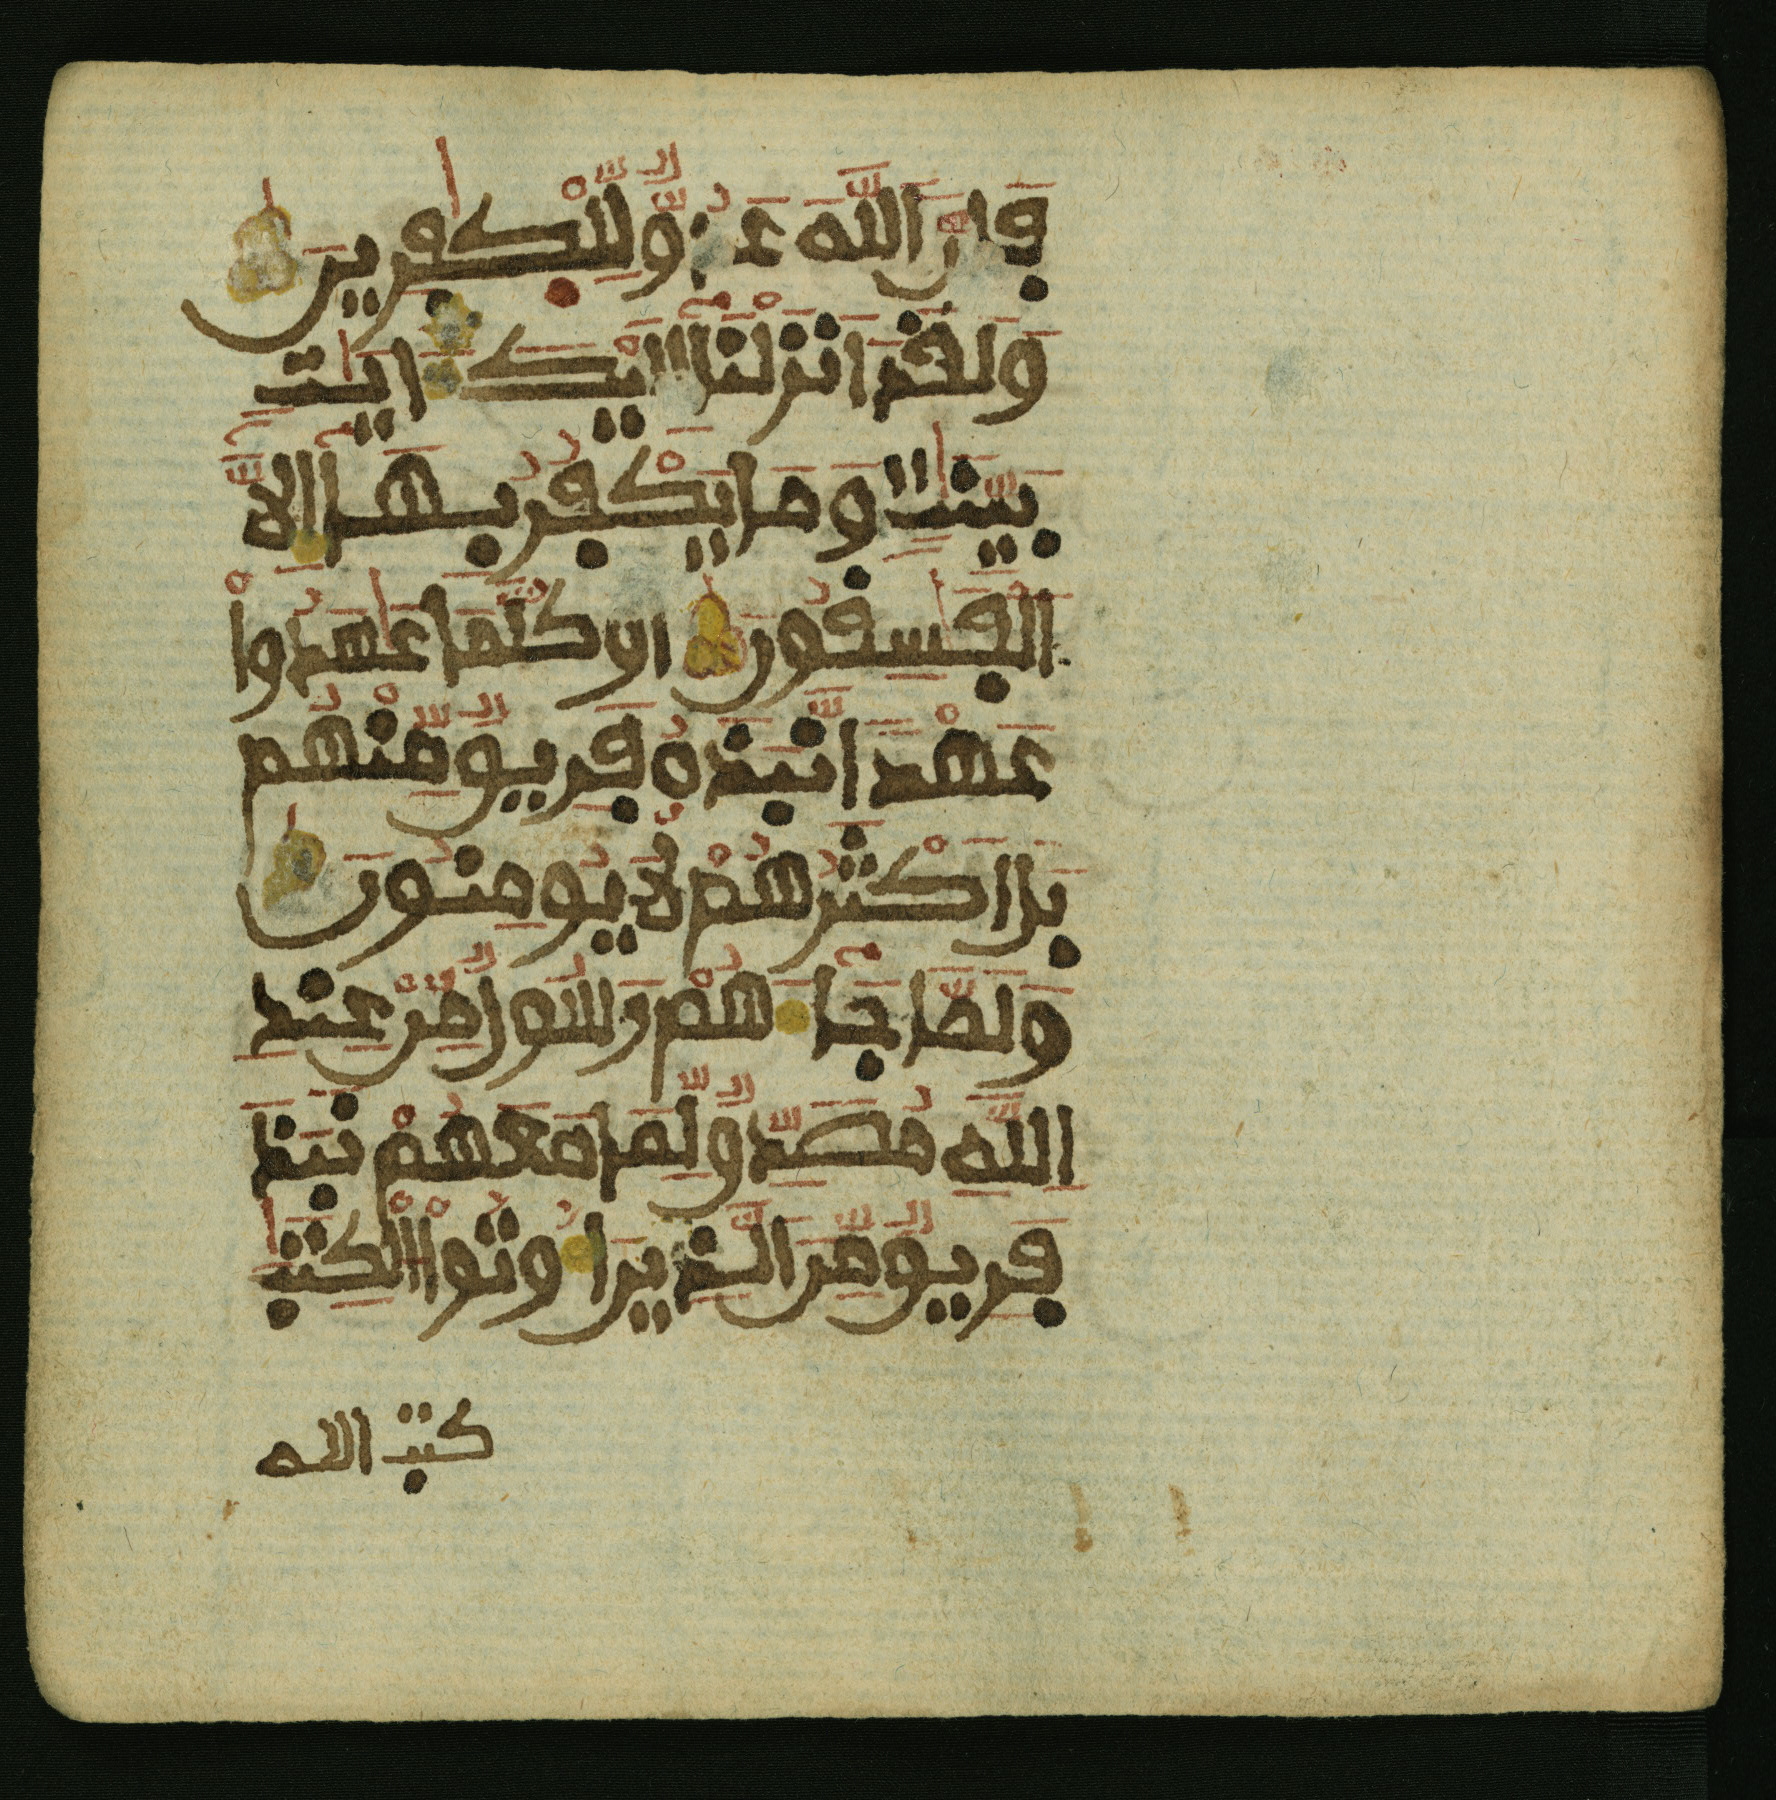 فَإِنَّ ٱللَّهَ عَدُوٌّ لِّلْكَٰفِرِينَ
وَلَقَدَ اَنزَلْنَآ إِلَيْكَ ءَايَٰتِۭ
بَيِّنَٰتٍ وَمَا يَكْفُرُ بِهَآ إِلَّا
ٱلْفَٰسِقُونَ أَوَكُلَّمَا عَٰهَدُواْ
عَهْدًا نَّبَذَهُۥ فَرِيقٌ مِّنْهُم
بَلَ اَكْثَرُهُمْ لَا يُومِنُونَ
وَلَمَّا جَآءَهُمْ رَسُولٌ مِّنْ عِندِ
ٱللَّهِ مُصَدِّقٌ لِّمَا مَعَهُمْ نَبَذَ
فَرِيقٌ مِّنَ ٱلَّذِينَ أُوتُواْ ٱلْكِتَٰبَ
كتب الله